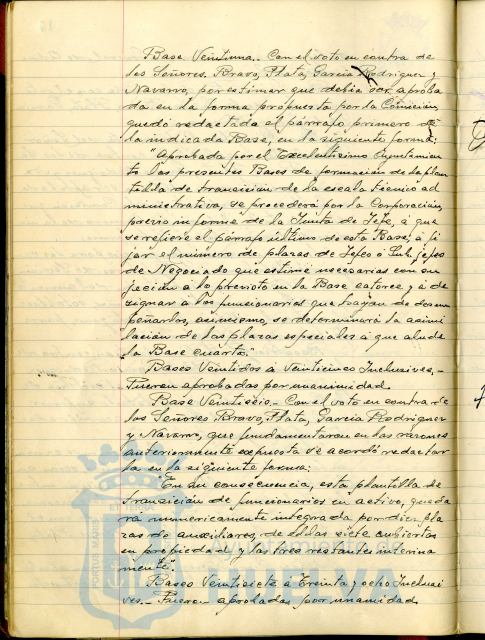 Base Veintiuna.- Con el voto en contra de
los Señores. Bravo, Plata, Garcia Rodriguez y
Navarro, por estimar que debia ser aproba
da en la forma propuesta por la Comisión,
quedó redactada el párrafo primero de
la indicada Base, en la siguiente forma:
"Aprobada por el Excelentisimo Ayuntamien
to las presentes Bases de formación de la plan
tilla de transición de la escala técnico ad
ministrativa, se procederá por la Corporación,
previo informe de la Junta de Jefe, a que
se refiere el párrafo último de esta Base, á fi
jar el número de plazas de Jefes o Sub-jefes
de Negociado que estime necesarias con su
jeción a lo previsto en la Base catorce y á de
signar a los funcionarios que hayan de desem
peñarlos, asimismo, se determinará la asimi
lación de las plazas especiales a que alude
la Base cuarta."
Bases Veintidos a Veinticinco Inclusives.-
Fueron aprobadas por unanimidad.
Base Veintiseis.- Con el voto en contra de
los Señores Bravo, Plata, Garcia Rodriguez
y Navarro, que fundamentaron en las razones
anteriormente expuesta se acordó redactar
la en la siguiente forma:
"En su consecuencia, esta plantilla de
transición de funcionarios en activo, queda
rá numericamente integrada por diez pla
zas de auxiliares, de ellas siete cubiertas
en propiedad y las tres restantes interina
mente".
Bases Veintisiete á Treinta y ocho Inclusi
ves.- Fueron aprobadas por unanimidad
Ayuntamiento de
HUELVA
PORTUS MARIS